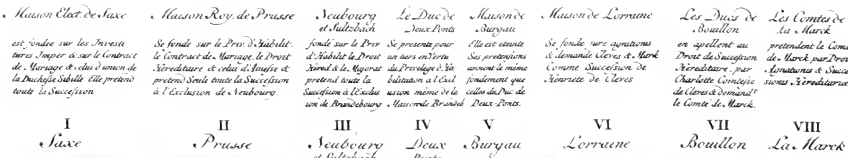 Maison Elect. de Saxe
est fondée sur les Investi
tures Imper & sur le Contract
de Mariage & celui d'union de
la Duchesse Sibille Elle pretend
toute la Succession
I
Saxe
Maison Roy. de Prusse
Se fonde sur le Priv. d'Habilit.
le Contract de Mariage, le Droit
Hereditaire & celui d'Ainesse et
pretend Seule toute la Succession
à l'Exclusion de Neubourg.
II
Prusse
Neubourg
et Sultzbach
fonde sur le Priv
d'Habilit le Droit
Hered. & le Majorat
pretend toute la
Succession à l'Exclus
ion de Brandebourg
III
Neubourg
et Sultzbach
Le Duc de
Deux Ponts
Se presente pour
un tiers en Vertu
du Privilege d'Ha
bilitation à l'Excl
usion même de la
Maison de Brandeb
IV
Deux
Ponts
Maison de
Burgau
Elle est étante
Ses pretentions
avoient le même
fondement que
celles du Duc de
Deux-Ponts.
V
Burgau
Maison de Lorraine
Se fonde jure agnationis
& demande Cleves & Mark
Comme Succession de
Henriete de Cleves
VI
Lorraine
Les Ducs de
Bouillon
en apellent au
Droit de Succession
Hereditaire par
Charlotte Comtesse
de Cleves & demand.t
le Comté de Marck.
VII
Bouillon
Les Comtes de
la Marck
pretendent le Com
de Marck par Droit
Agnationis & Succes
sionis Hereditariæ
VIII
La Marck